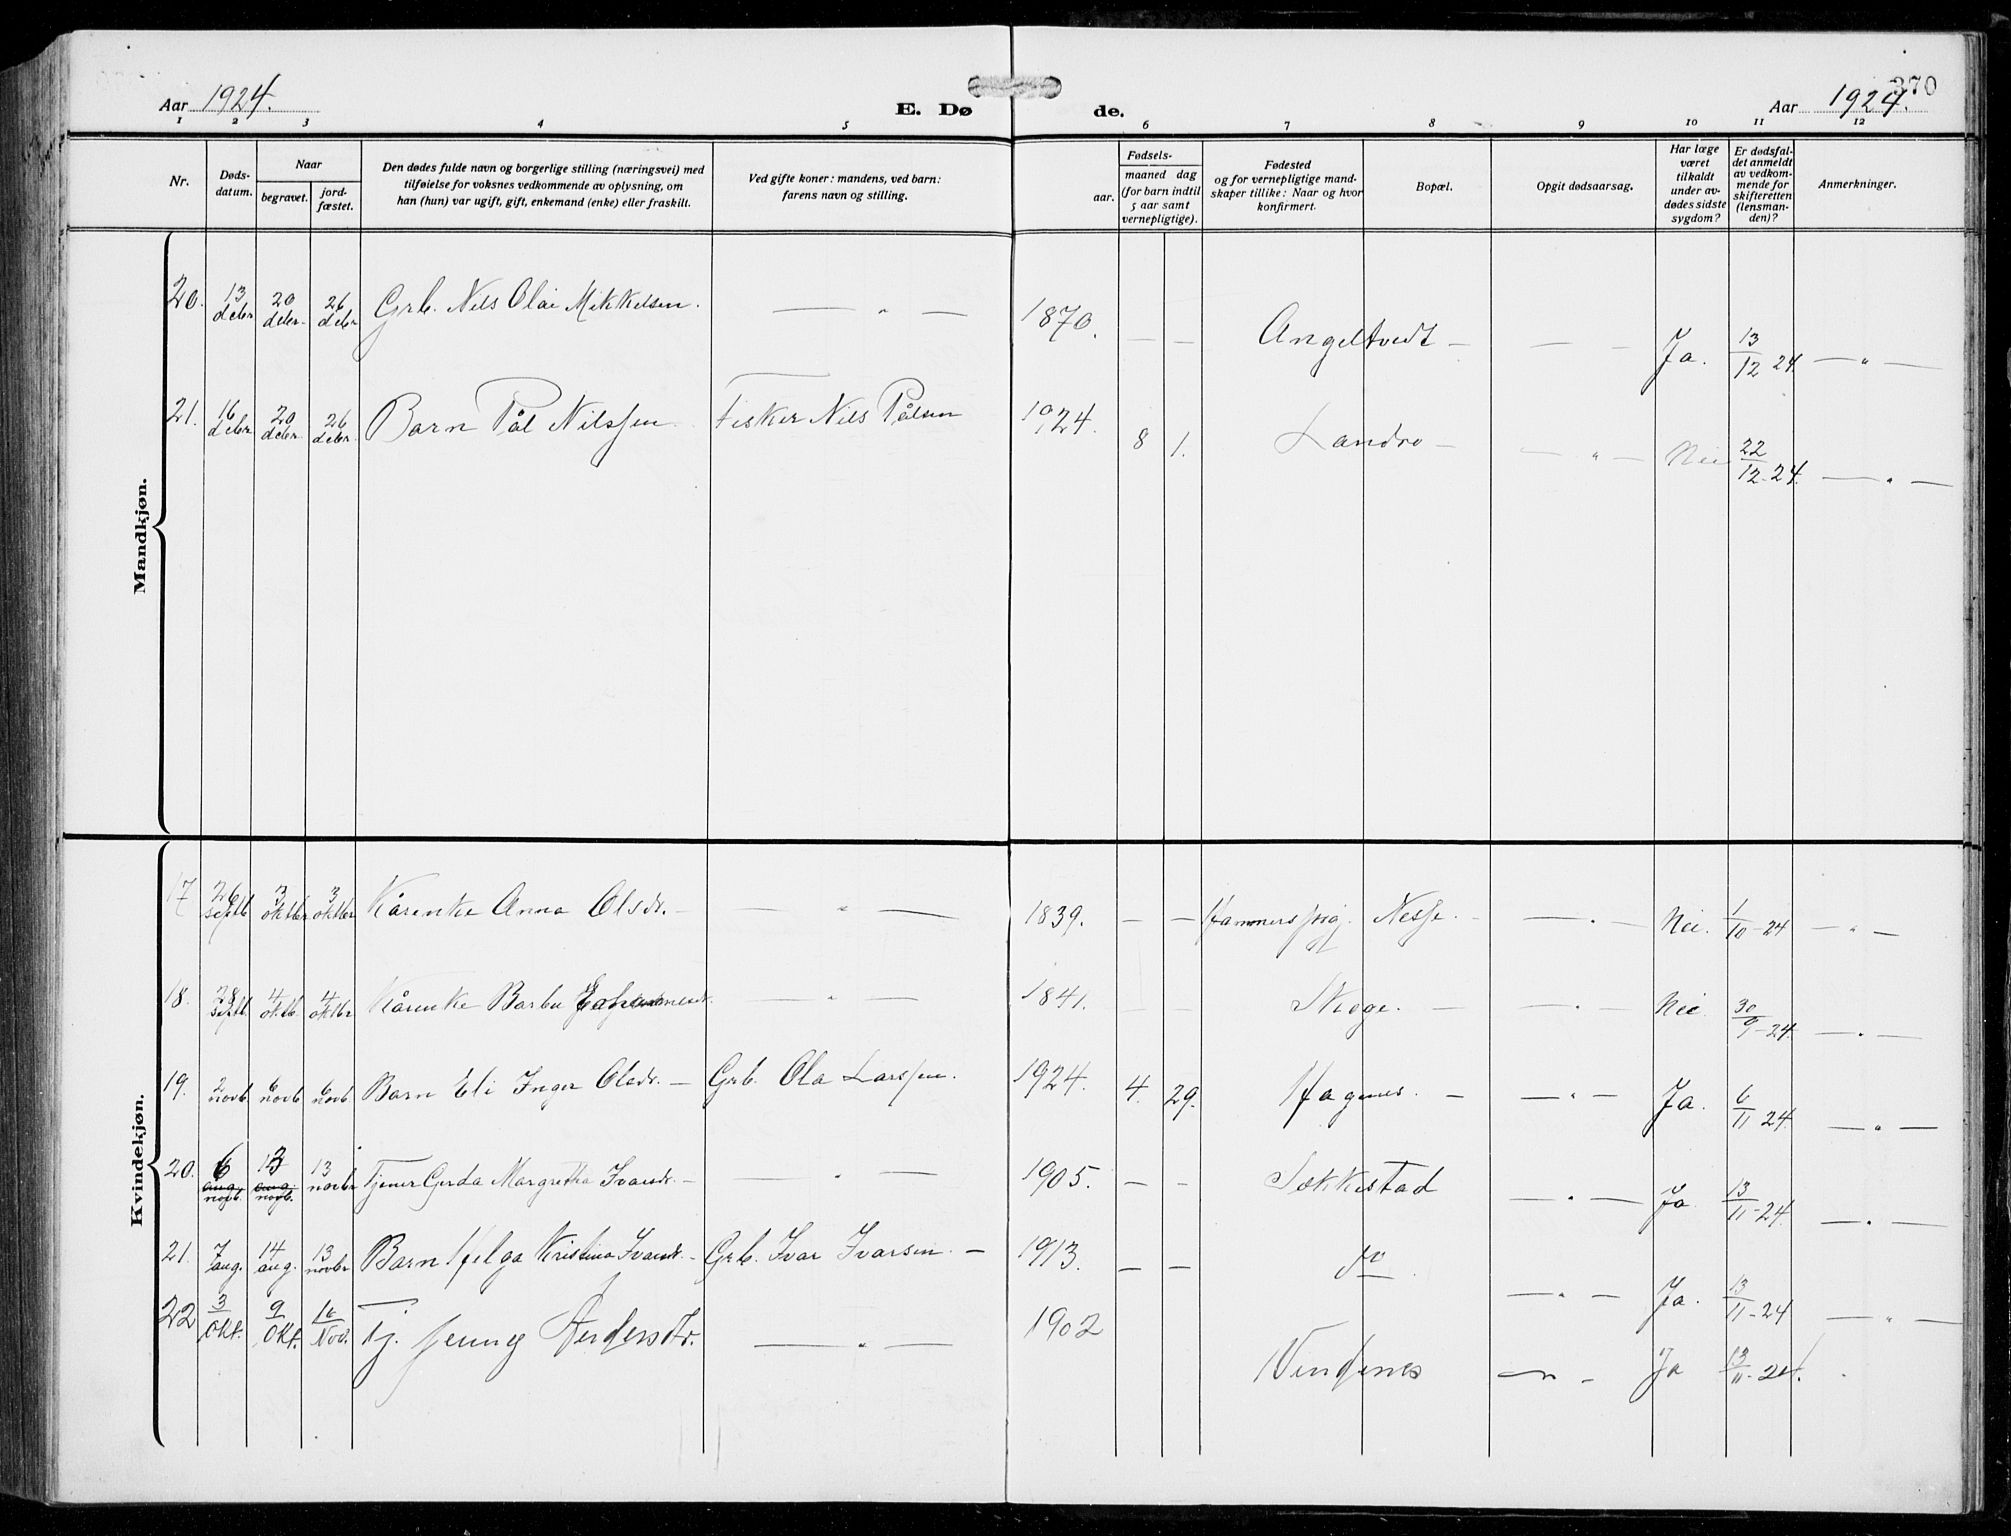 370
Aar 1924.
E. Dø
de.
Aar 1924.
1 2 3 4 5 6 7 8 9 10 11 12
Nr.
Døds-
datum.
Naar
begravet.
jord-
fæstet.
Den dødes fulde navn og borgerlige stilling (næringsvei) med
tilføielse for voksnes vedkommende av oplysning, om
han (hun) var ugift, gift, enkemand (enke) eller fraskilt.
Ved gifte koner: mandens, ved barn:
farens navn og stilling.
Fødsels-
aar.
maaned dag
(for barn indtil
5 aar samt
vernepligtige).
Fødested
og for vernepligtige mand-
skaper tillike: Naar og hvor
konfirmert.
Bopæl.
Opgit dødsaarsag.
Har læge
været
tilkaldt
under av-
dødes sidste
sygdom?
Er dødsfal-
det anmeldt
av vedkom-
mende for
skifteretten
(lensman-
den)?
Anmerkninger.
Mandkjøn.
20. 13 debr 20 debr. 26 debr Grb. Nils Olai Mikkelsen. — " — 1870. — — Angeltvedt — — — Ja. 13/12 24 — " —
21. 16 debr 20 debr. 26 debr. Barn Pål Nilssen Fisker Nils Pålsen 1924. 8 1. Landro — — " — Nei 22/12-24. — " —
Kvindekjøn.
17 26 septb 3 oktbr 3 oktbr Kårenke Anna Olsdr. — — " — 1839. — — Hammersprgj. Nesse. — — " — Nei. 1/10-24 — " —
18. 28 septb. 4 oktb. 4 oktbr Kårenke Barbu — " — 1841. — — Skoge. — — " — Nei 30/9-24. — " —
19. 2 novb. 6 novb 6 novb Barn Eli Inger Olsdr. — Grb. Ola Larssen. 1924. 4. 29. Hagenes. — — " — Ja. 6/11 24. — " —
20. 6 aug. novb. 13 aug. novb. 13 novbr Tjener Gerda Margretha Ivarsdr. — — " — 1905. — — Søkkestad — " — Ja. 13/11-24. — " —
21. 7 aug. 14 aug. 13 novbr Barn Helga Kristina Ivarsdr. — Grb. Ivar Ivarsen. — 1913. — — do — " — Ja. 13/11-24 — " —
22 3/Okt. 9/Okt. 16/Nov. Tj. Jenny Andersdr. — " — 1902 Vindenes — " — Ja 13/11-24.